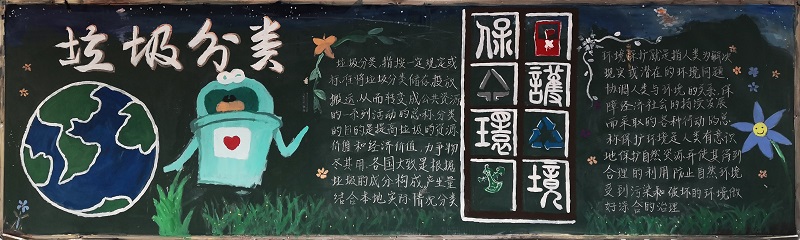 垃圾分类
垃圾分类,指按一定规定或
标准将垃圾分类储存、投放
搬运,从而转变成公共资源
的一系列活动的总称.分类
的目的是提高垃圾的资源
价值和经济价值,力争物
尽其用.各国大致是根据
垃圾的成分构成,产生量
结合本地实际情况分类
保
護
環
境
环境保护就是指人类为解决
现实或潜在的环境问题
协调人类与环境的关系,保
障经济社会的持续发展
而采取的各种活动的总
称保护环境是人类有意识
地保护自然资源并使其得到
合理的利用防止自然环境
受到污染和破坏的环境做
好综合的治理